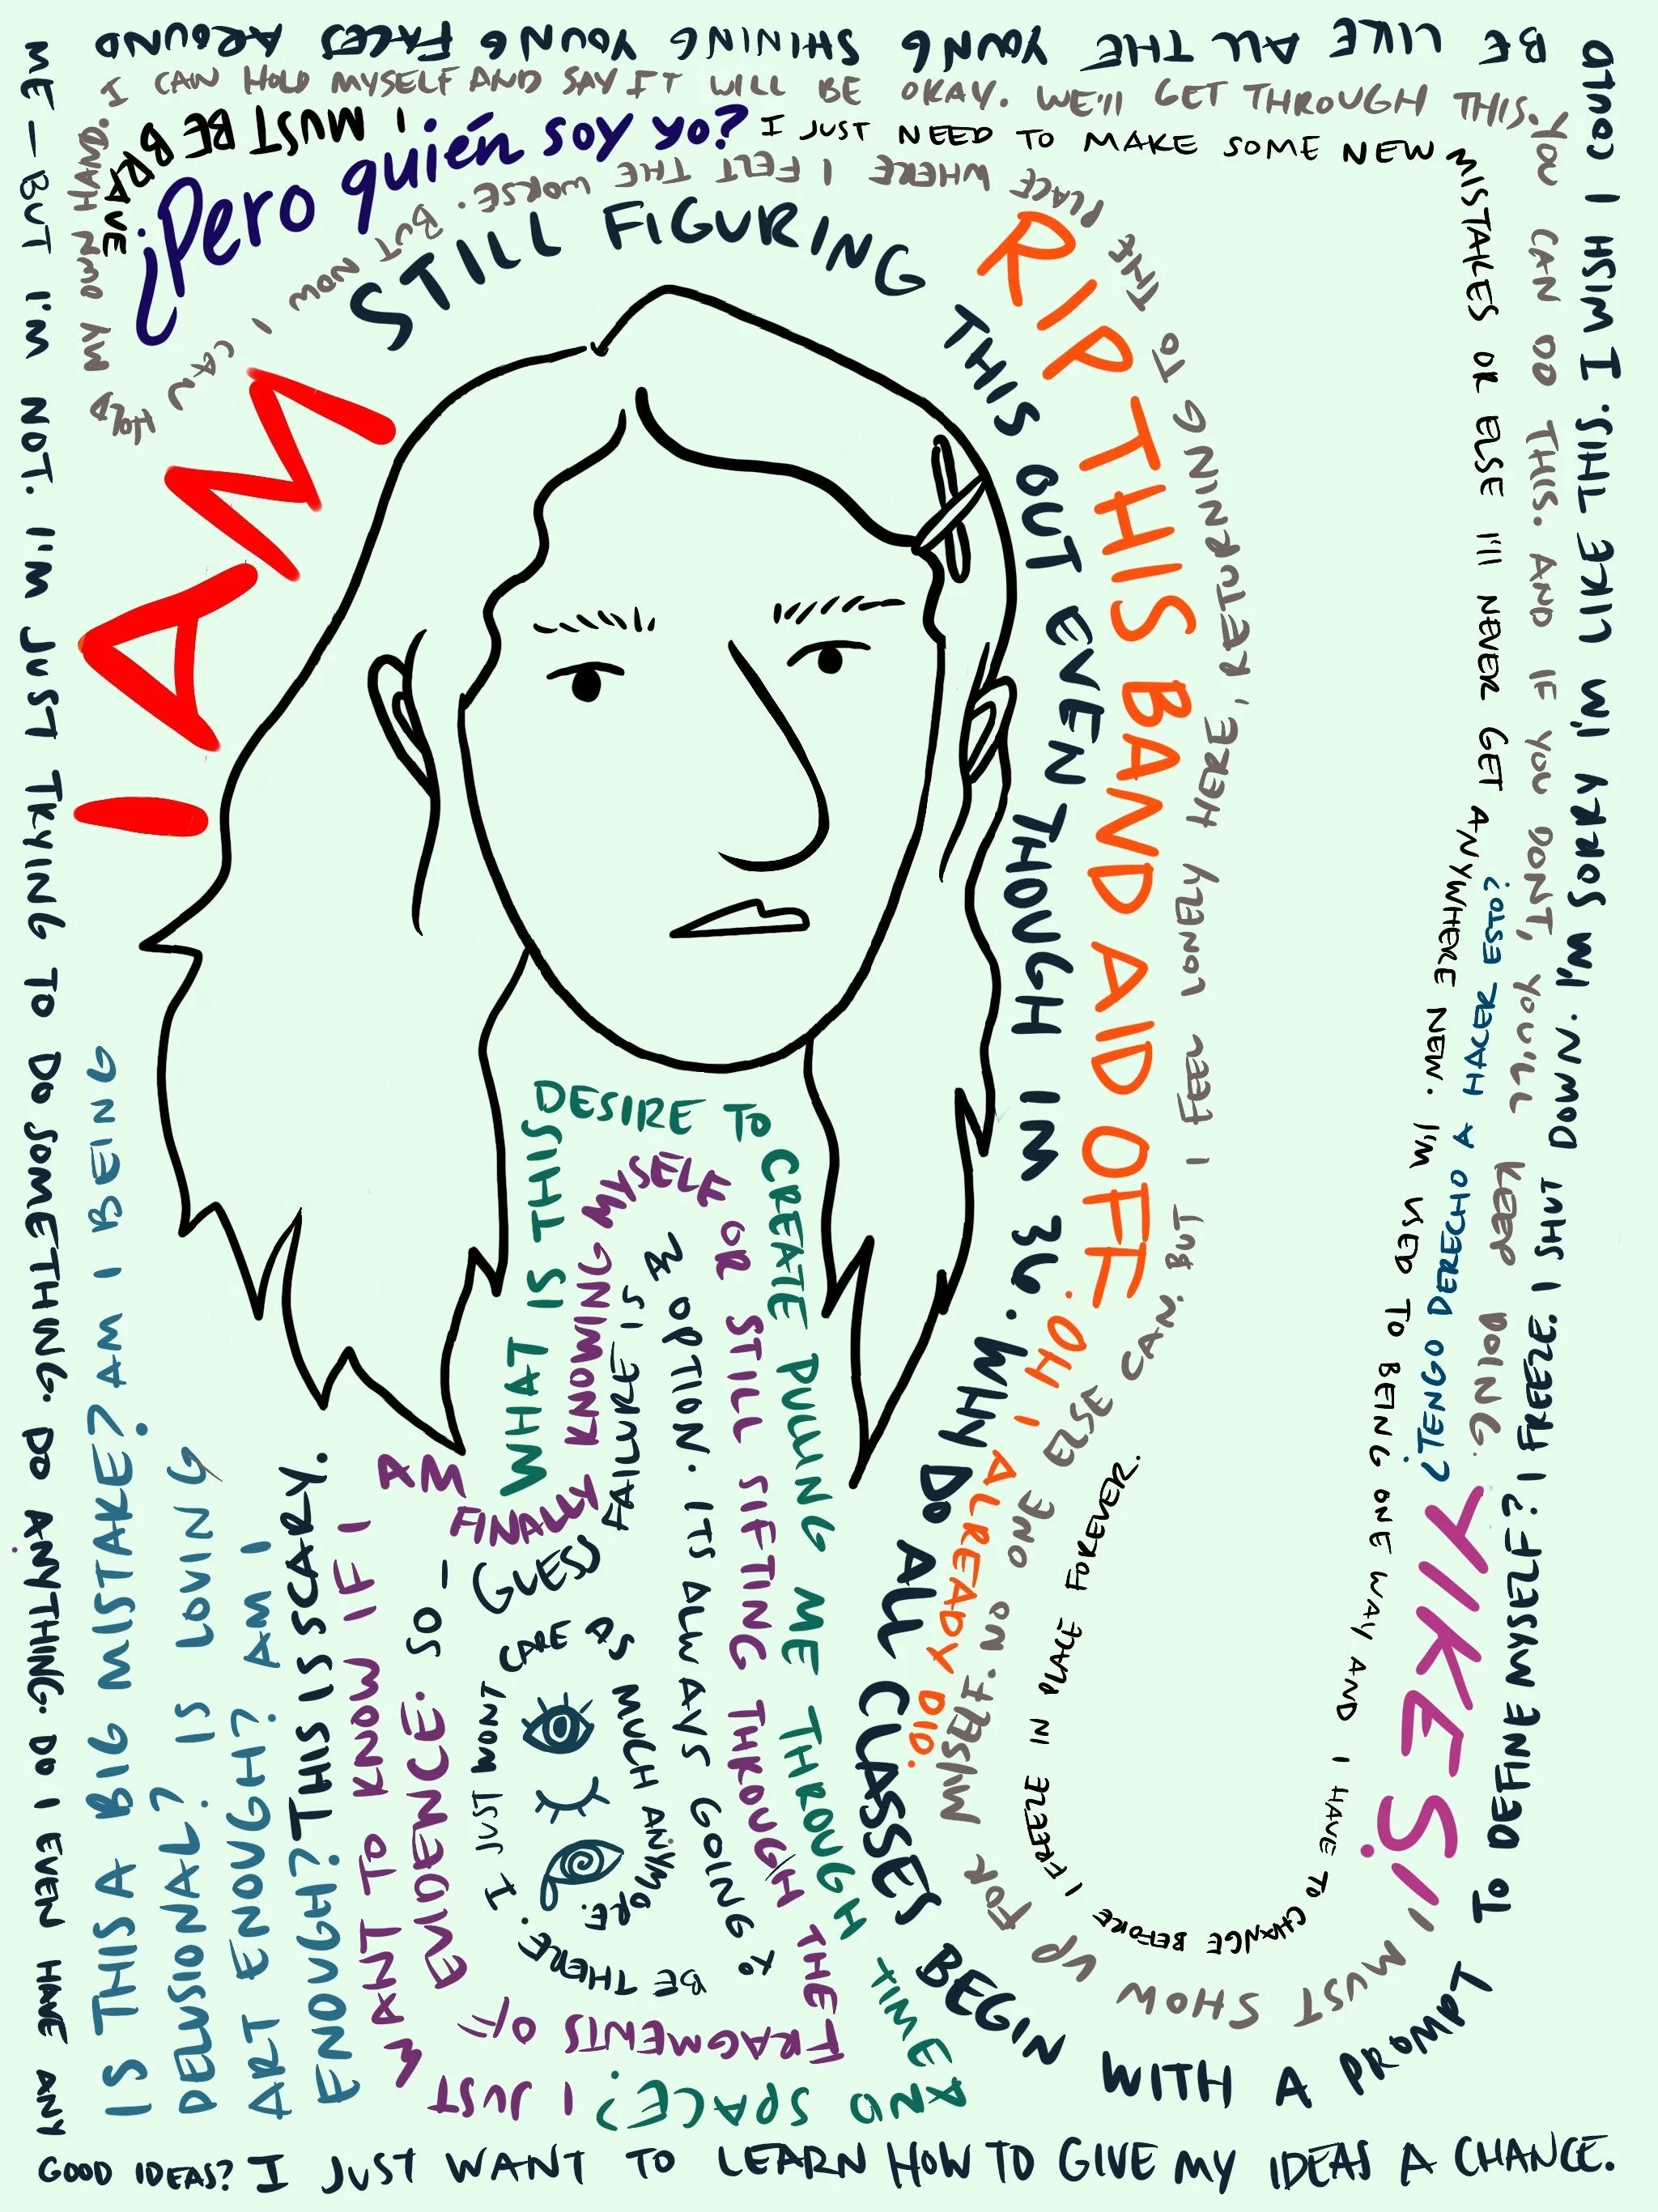 I AM
STILL FIGURING THIS OUT EVEN THOUGH IM 36. WHY DO ALL CLASSES BEGIN WITH A PROMPT TO DEFINE MYSELF? I FREEZE. I SHUT DOWN. I'M SORRY I'M LIKE THIS. I WISH I COULD
BE LIKE ALL THE YOUNG SHINING YOUNG FACES AROUND
ME — BUT I'M NOT. I'M JUST TRYING TO DO SOMETHING. DO ANYTHING. DO I EVEN HAVE ANY
GOOD IDEAS? I JUST WANT TO LEARN HOW TO GIVE MY IDEAS A CHANCE.
¿Pero quién soy yo?
I MUST BE BRAVE
I JUST NEED TO MAKE SOME NEW MISTAKES OR ELSE I'll NEVER GET ANYWHERE NEW. I'M USED TO BEING ONE WAY AND I HAVE TO CHANGE BEFORE I FREEZE IN PLACE FOREVER.
RIP THIS BAND AID OFF. OH, I ALREADY DID.
¿TENGO DERECHO A HACER ESTO?
YIKES!
I MUST SHOW UP FOR MYSELF. NO ONE ELSE CAN. BUT I FEEL LONELY HERE, RETURNING TO THE PLACE WHERE I FELT THE WORSE. BUT NOW I CAN HOLD MY OWN HAND.
I CAN HOLD MYSELF AND SAY IT WILL BE OKAY. WE'll GET THROUGH THIS. YOU CAN DO THIS. AND IF YOU DONT, YOU'LL KEEP DOING.
IS THIS A BIG MISTAKE? AM I BEING
DELUSIONAL? IS LOVING
ART ENOUGH? AM I
ENOUGH? THIS IS SCARY.
WHAT IS THIS DESIRE TO CREATE PULLING ME THROUGH TIME AND SPACE?
I JUST WANT TO KNOW IF I AM FINALLY KNOWING MYSELF OR STILL SIFTING THROUGH THE FRAGMENTS OF EVIDENCE.
SO - I GUESS FAILURE IS AN OPTION. ITS ALWAYS GOING TO BE THERE. I JUST WONT CARE AS MUCH ANYMORE.